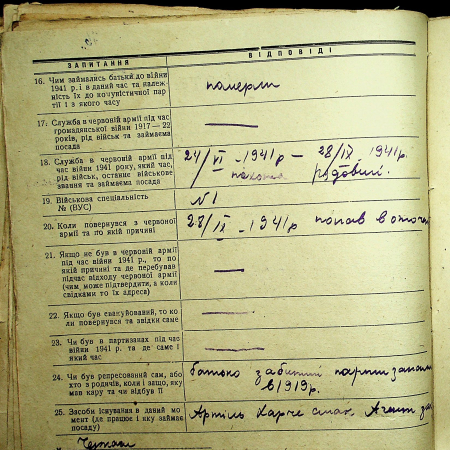 ЗАПИТАННЯ
ВІДПОВІДІ
16. Чим займались батьки до війни
1941 р. і в даний час та належ-
ність їх до комуністичної пар
тії і з якого часу
померли
17. Служба в червоній армії під час
громадянської війни 1917—22
років, рід військ та займаєма
посада
18. Служба в червоній армії під
час війни 1941 року, який час,
рід військ, останнє військове
звання та займаєма посада
24/VI -1941р — 28/IX 1941р.
піхота рядовий.
19. Військова спеціальність
№ (ВУС)
№1
20. Коли повернувся з червоної
армії та по якій причині
28/IX - 1941р попав в оточ
21. Якщо не був в червоній армії
під час війни 1941 р., то по
якій причині та де перебував
підчас відходу червоної армії
(чим може підтвердити, а коли
свідками то їх адреса)
22. Якщо був евакуйований, то ко
ли повернувся та звідки саме
23. Чи був в партизанах під час
війни 1941 р. та де саме і
який час
24. Чи був репресований сам, або
хто з родичів, коли і защо, яку
мав кару та чи відбув її
батько забитий
в 1919р.
25. Засоби існування в даний мо
мент (де працює і яку займає
посаду)
Артіль Харч смак Агент